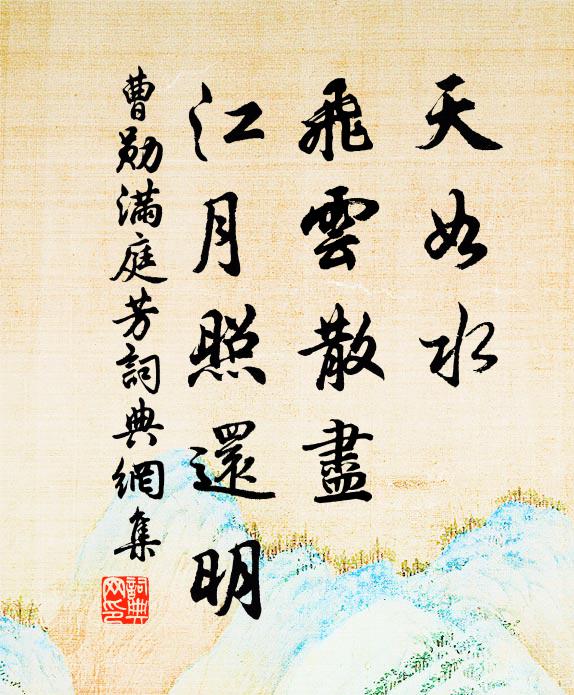 天如水
飛雲散盡
江月照還明
曹勛滿庭芳詞典網集
詞典網印